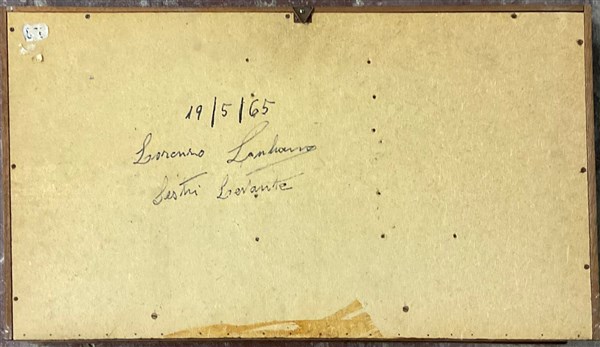 19/5/65
Lorenzo
Sestri Levante